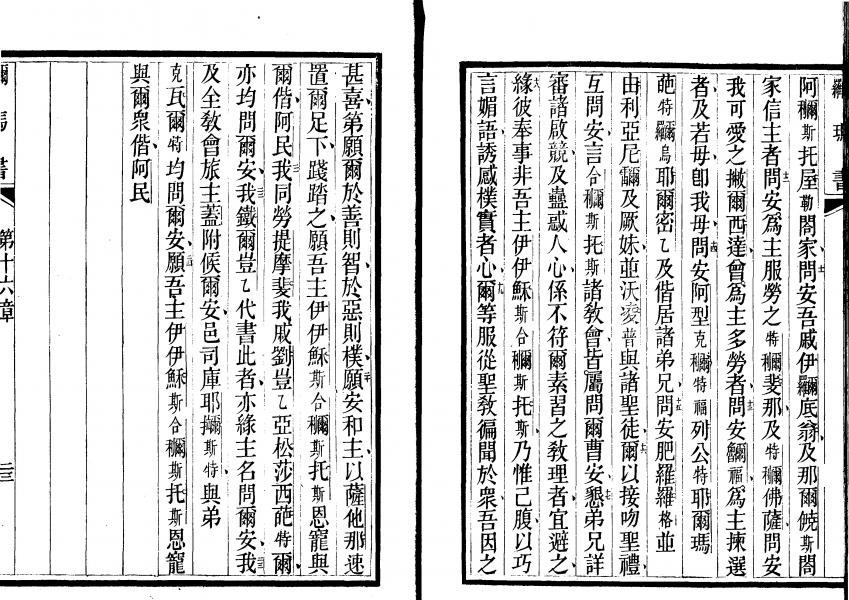 羅瑪書
阿穪斯托屋勒閤家問安吾戚伊囉底翁及那爾僥斯閤
家信主者問安爲主服勞之特穪斐那及特穪佛薩問安
我可愛之撇爾西達曾爲主多勞者問安爲主揀選
者及若毋卽我毋問安阿型克穪特福列公特耶爾瑪
葩特囉烏耶爾密乙及偕居諸弟兄問安肥羅羅格並
由利亞尼及厥妹並沃麥普與諸聖徒爾以接吻聖禮
互問安言合穪斯托斯諸敎會皆屬問爾曹安懇弟兄詳
審諸啟競及蠱惑人心係不符爾素習之敎理者宜避之
緣彼奉事非吾主伊伊穌斯合穪斯托斯乃惟己腹以巧
言媚語誘感樸實者心爾等服從聖敎徧聞於衆吾因之
甚喜第願爾於善則智於惡則樸願安和主以薩他那速
置爾足下踐踏之願吾主伊伊穌斯合穪斯托斯恩寵與
爾偕阿民我同勞提摩斐我戚劉豈乙亞松莎西葩特爾
亦均問爾安我鐵爾豈乙代書此者亦緣主名問爾安我
及全敎會旅主蓋附候爾安邑司庫耶斯特與弟
克瓦爾特均問爾安願吾主伊伊穌斯合穪斯托斯恩寵
與爾衆偕阿民
瑪書
第十六章
二三